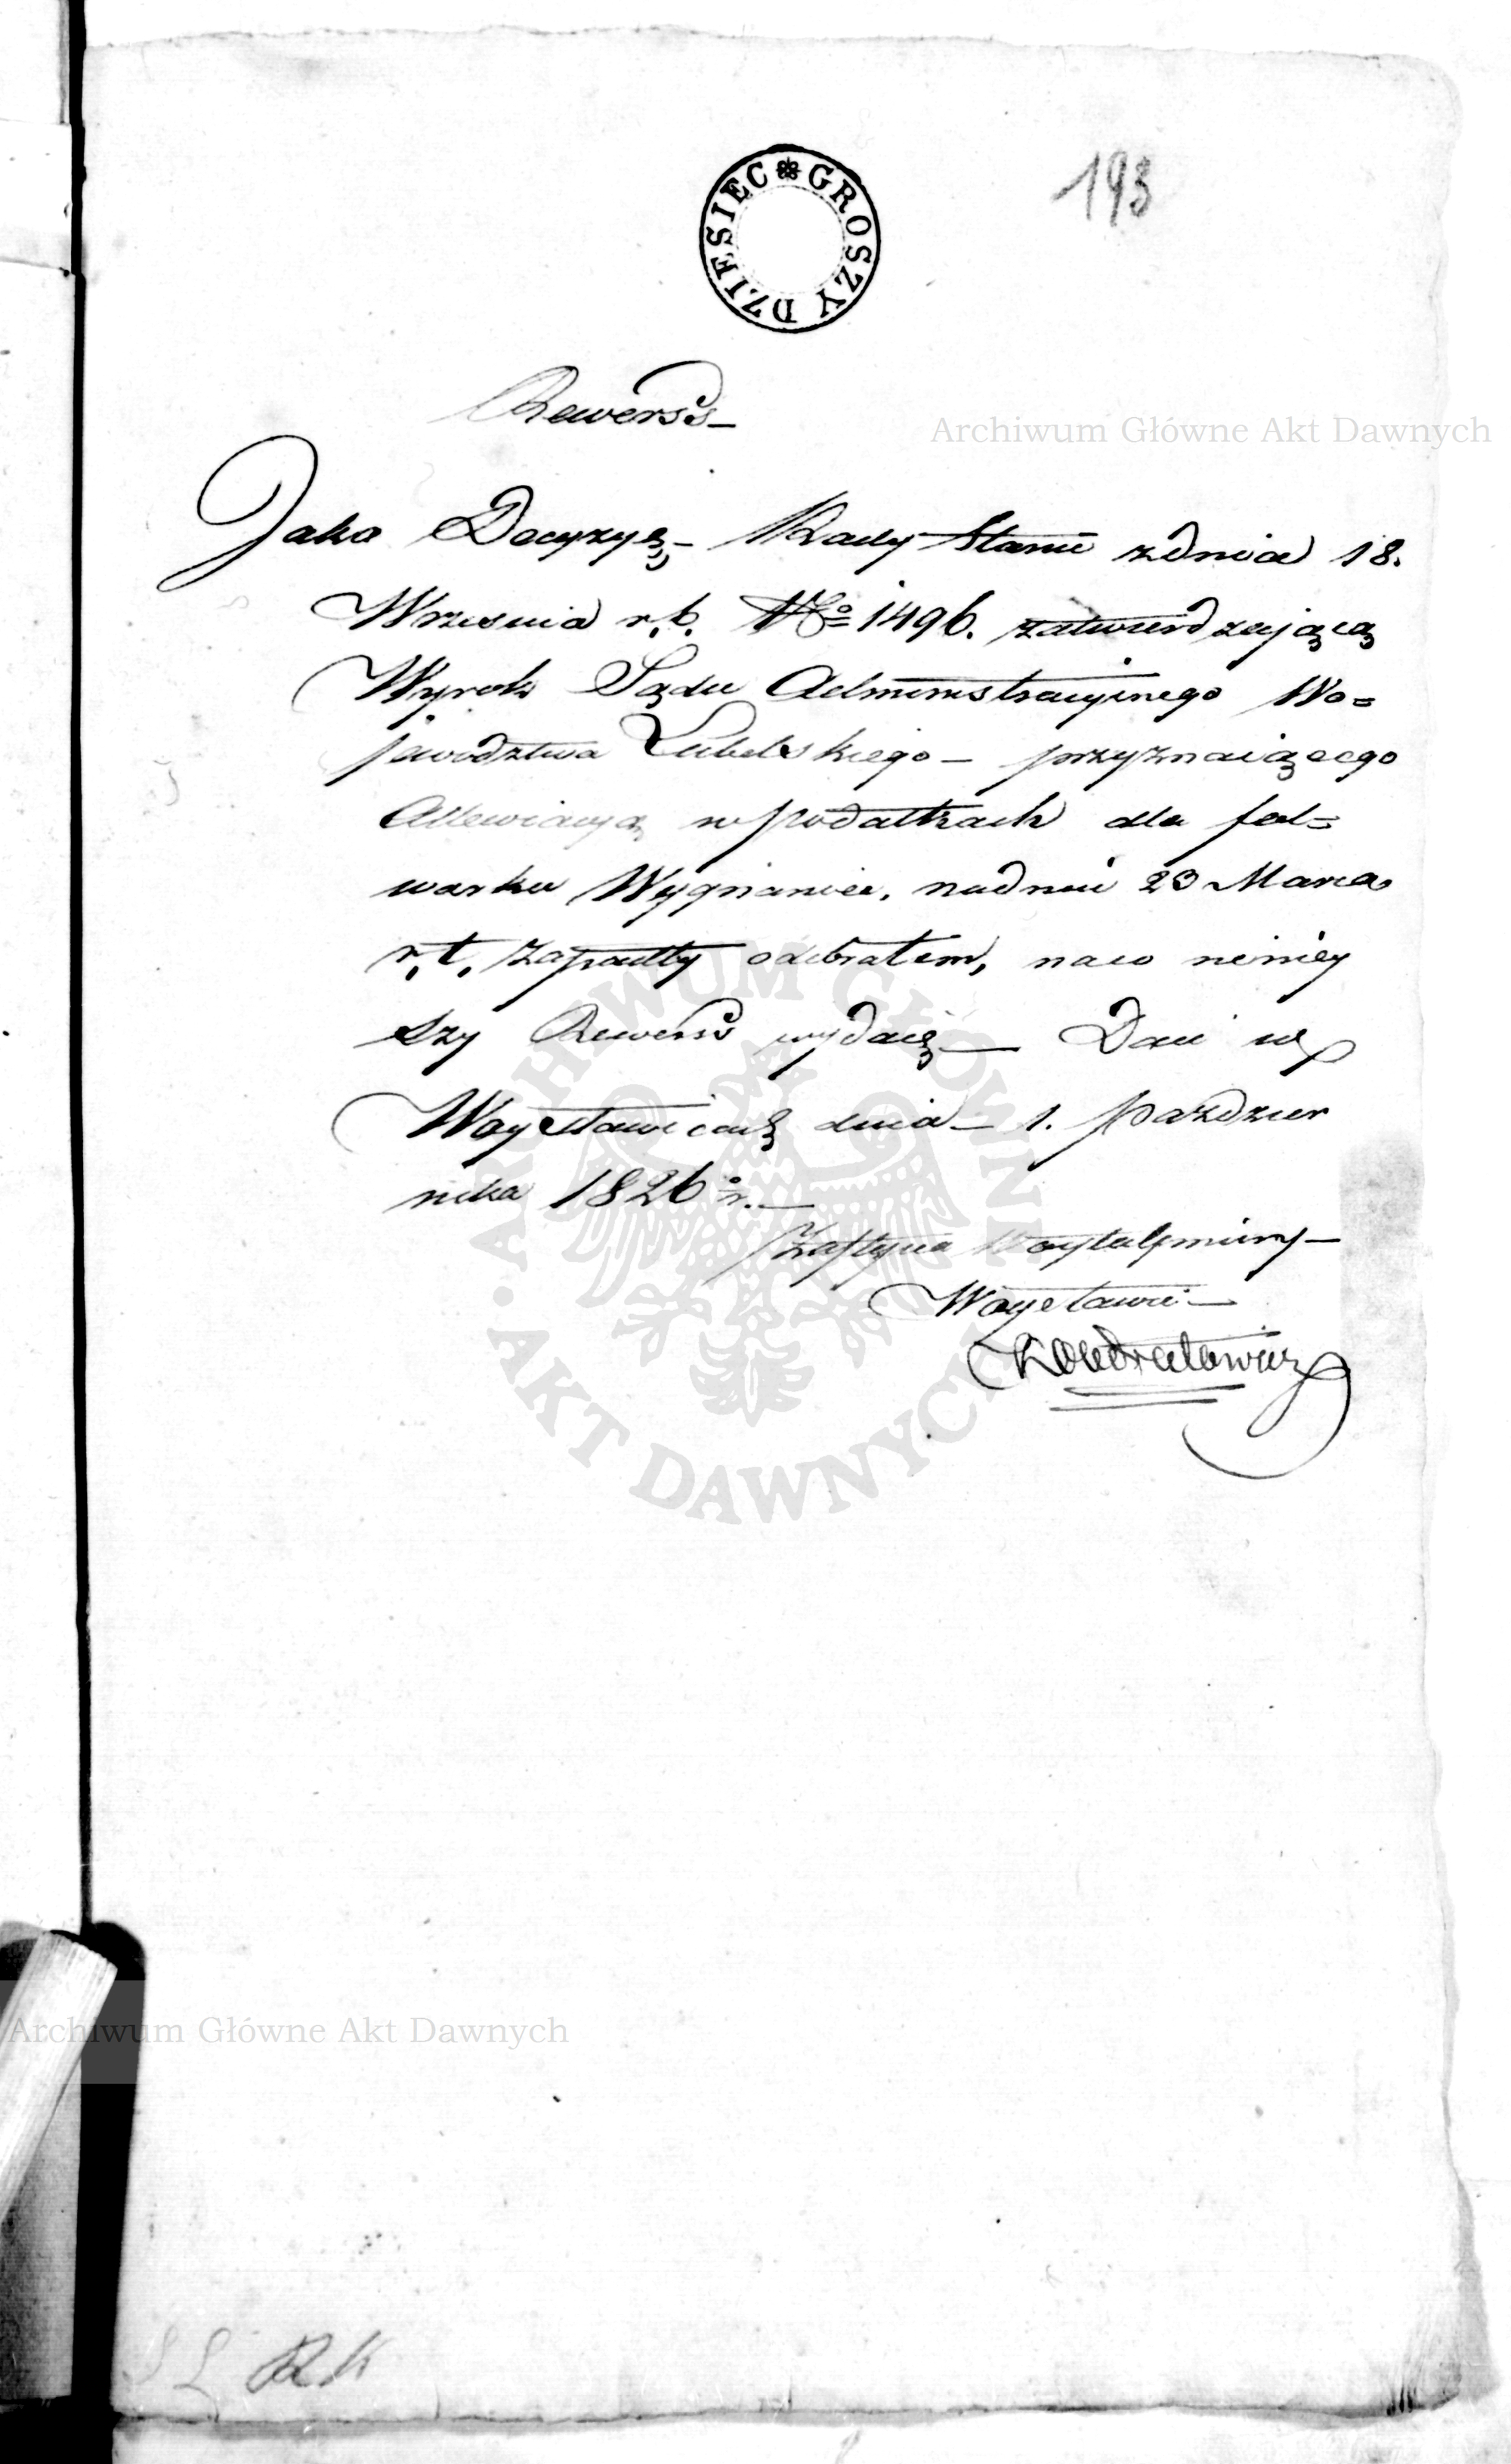 193
DZIESIEC ❃ GROSZY
Rewerss
Archiwum Główne Akt Dawnych
Jako Decyzyę Rady Stanu zdnia 18.
Wrzesnia r.b. No 1496. zatwierdzającą
Wyrok Sądu Administracyinego Wo=
jewodztwa Lubelskiego – przyznaiącego
Allewiacyą w podatkach dla fol=
warku Wygnaniec, nadniu 23 Marca
r.t. zapadły odebrałem, naco niniey
szy Rewerss wydaię – Dan w
Woysławicach dnia – 1. Pazdzier
nika 1826 r. –
Zastępca Woyta Gminy –
Woysławic –
ARCHIWUM GŁÓWNE
• AKT DAWNYCH •
Archiwum Główne Akt Dawnych
RK